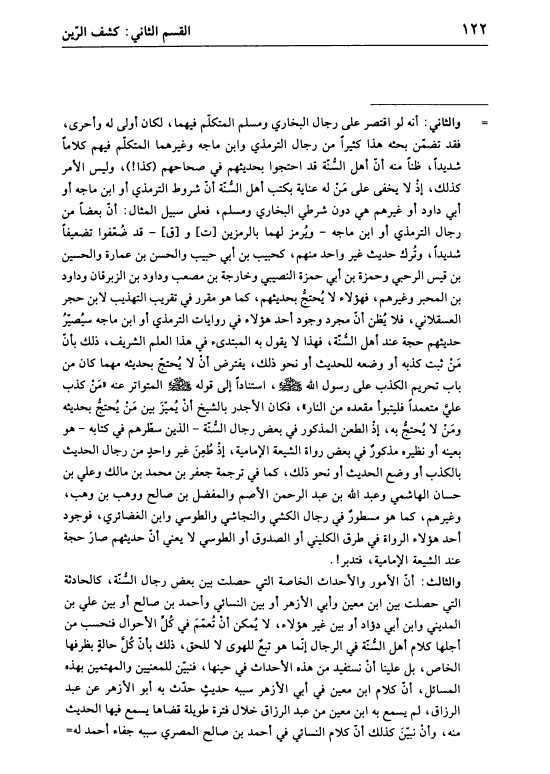 ١٢٢ القسم الثاني: كشف الرّين
= والثاني: أنه لو اقتصر على رجال البخاري ومسلم المتكلّم فيهما، لكان أولى له وأحرى،
فقد تضمّن بحثه هذا كثيراً من رجال الترمذي وابن ماجه وغيرهما المتكلّم فيهم كلاماً
شديداً، ظناً منه أنّ أهل السُّنّة قد احتجوا بحديثهم في صحاحهم (كذا!)، وليس الأمر
كذلك، إذْ لا يخفى على مَنْ له عناية بكتب أهل السُّنّة أنّ شروط الترمذي أو ابن ماجه أو
أبي داود أو غيرهم هي دون شرطي البخاري ومسلم، فعلى سبيل المثال: أنّ بعضاً من
رجال الترمذي أو ابن ماجه - ويُرمز لهما بالرمزين [ت] و [ق] - قد ضُعّفوا تضعيفاً
شديداً، وتُرك حديث غير واحد منهم، كحبيب بن أبي حبيب والحسن بن عمارة والحسين
بن قيس الرحبي وحمزة بن أبي حمزة النصيبي وخارجة بن مصعب وداود بن الزبرقان وداود
بن المحبر وغيرهم، فهؤلاء لا يُحتجُّ بحديثهم، كما هو مقرر في تقريب التهذيب لابن حجر
العسقلاني، فلا يُظن أنّ مجرد وجود أحد هؤلاء في روايات الترمذي أو ابن ماجه سيُصيّرُ
حديثهم حجة عند أهل السُّنّة، فهذا لا يقول به المبتدىء في هذا العلم الشريف، ذلك بأنّ
مَنْ ثبت كذبه أو وضعه للحديث أو نحو ذلك، يفترض أنْ لا يُحتجّ بحديثه مهما كان من
باب تحريم الكذب على رسول الله ﷺ، استناداً إلى قوله ﷺ المتواتر عنه «مَنْ كذب
عليَّ متعمداً فليتبوأ مقعده من النار»، فكان الأجدر بالشيخ أنْ يُميّزَ بين مَنْ يُحتجُّ بحديثه
ومَنْ لا يُحتجُّ به، إذْ الطعن المذكور في بعض رجال السُّنّة - الذين سطّرهم في كتابه - هو
بعينه أو نظيره مذكورٌ في بعض رواة الشيعة الإمامية، إذْ طُعنَ غير واحدٍ من رجال الحديث
بالكذب أو وضع الحديث أو نحو ذلك، كما في ترجمة جعفر بن محمد بن مالك وعلي بن
حسان الهاشمي وعبد الله بن عبد الرحمن الأصم والمفضل بن صالح ووهب بن وهب،
وغيرهم، كما هو مسطورٌ في رجال الكشي والنجاشي والطوسي وابن الغضائري، فوجود
أحد هؤلاء الرواة في طرق الكليني أو الصدوق أو الطوسي لا يعني أنّ حديثهم صارَ حجة
عند الشيعة الإمامية، فتدبر!.
والثالث: أنّ الأمور والأحداث الخاصة التي حصلت بين بعض رجال السُّنّة، كالحادثة
التي حصلت بين ابن معين وأبي الأزهر أو بين النسائي وأحمد بن صالح أو بين علي بن
المديني وابن أبي دؤاد أو بين غير هؤلاء، لا يُمكن أنْ تُعمّمَ في كُلِّ الأحوال فنحسب من
أجلها كلام أهل السُّنّة في الرجال إنّما هو تبعٌ للهوى لا للحق، ذلك بأنّ كُلَّ حالةٍ بظرفها
الخاص، بل علينا أنْ نستفيد من هذه الأحداث في حينها، فنبيّن للمعنيين والمهتمين بهذه
المسائل، أنّ كلام ابن معين في أبي الأزهر سببه حديثٍ حدّث به أبو الأزهر عن عبد
الرزاق، لم يسمع به ابن معين من عبد الرزاق خلال فترة طويلة قضاها يسمع فيها الحديث
منه، وأنْ نبيّنَ كذلك أنّ كلام النسائي في أحمد بن صالح المصري سببه جفاء أحمد له=